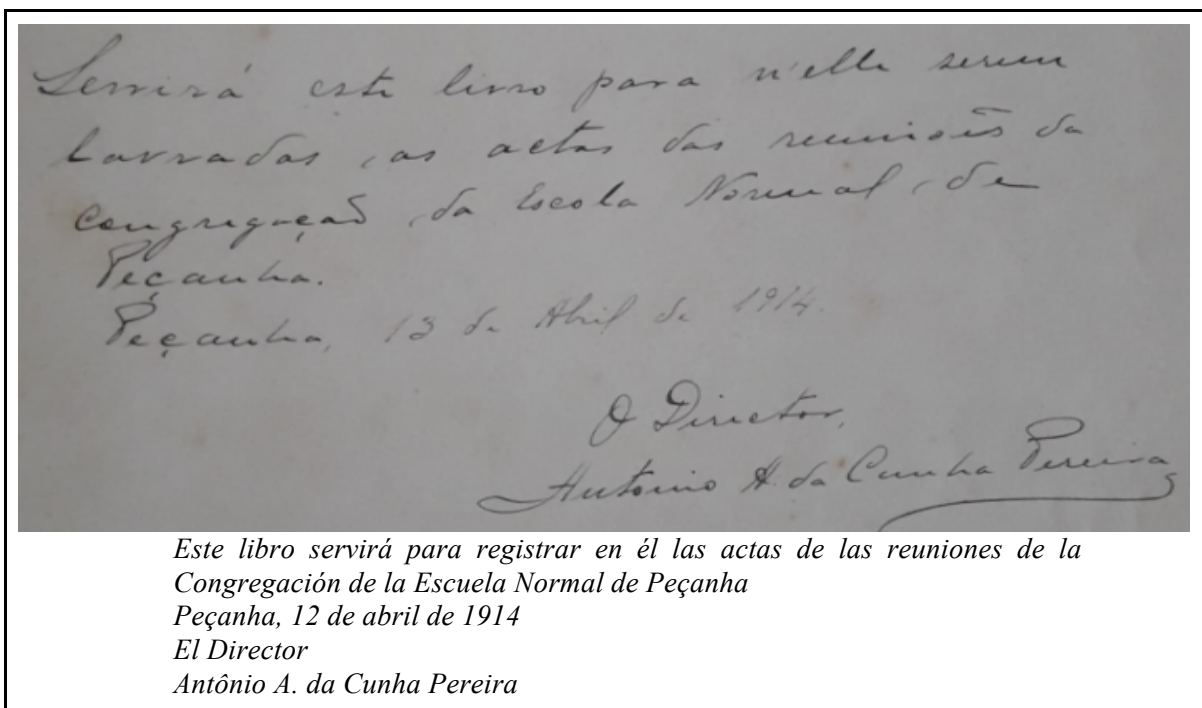 Servirá este livro para n'elle serem
lavradas as actas das reuniões da
congregação da Escola Normal de
Peçanha.
Peçanha, 13 de Abril de 1914.
O Director,
Antonio A. da Cunha Pereira
Este libro servirá para registrar en él las actas de las reuniones de la
Congregación de la Escuela Normal de Peçanha
Peçanha, 12 de abril de 1914
El Director
Antônio A. da Cunha Pereira